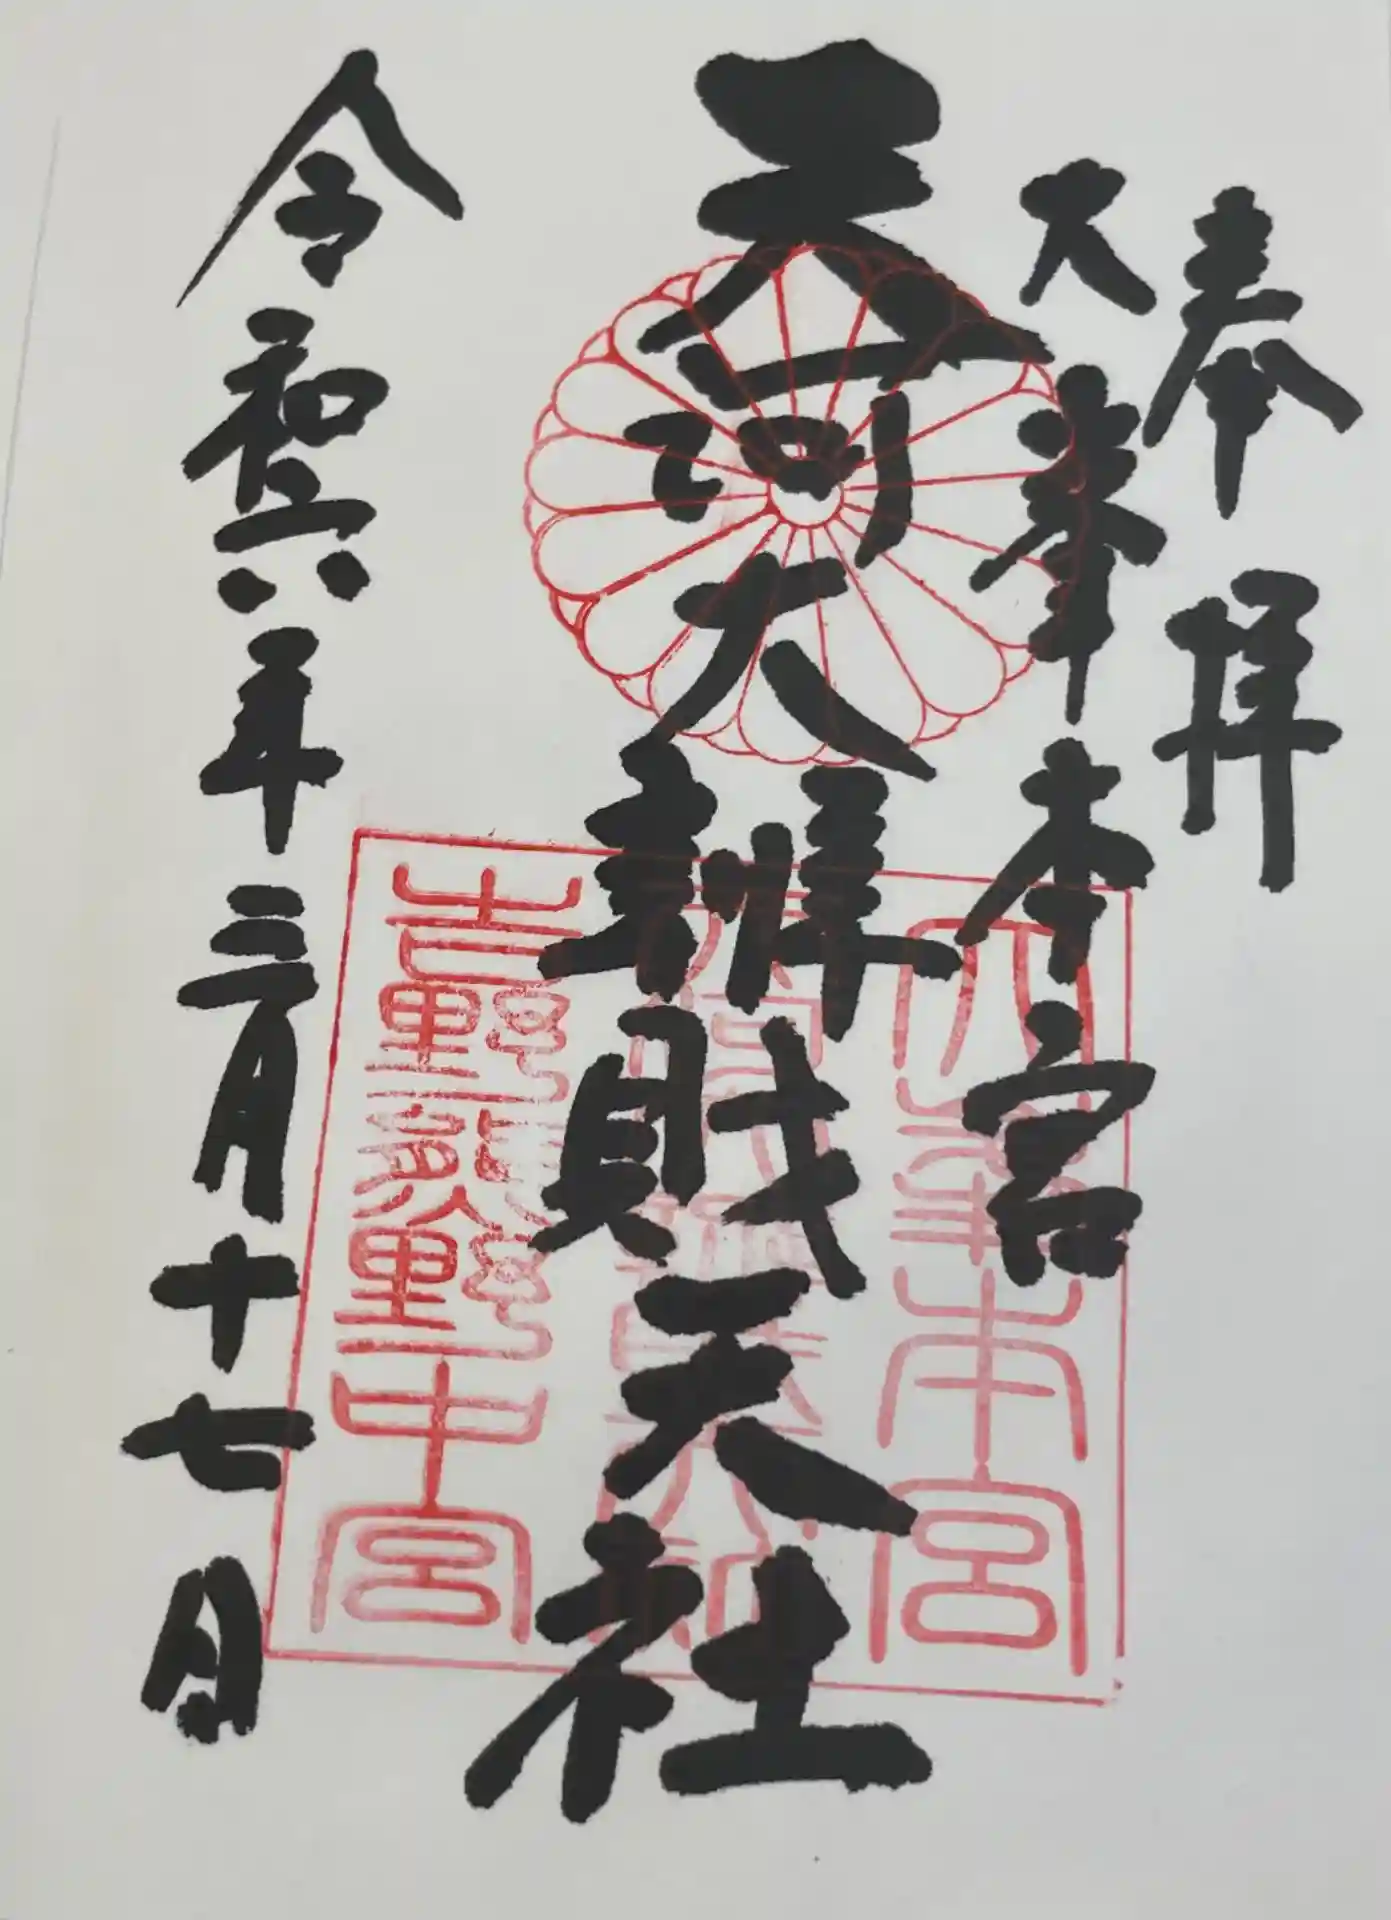 奉拝
大峯本宮
天河大辨財天社
令和六年三月十七日
大峯本宮
天河大辨財天社
吉野熊野中宮